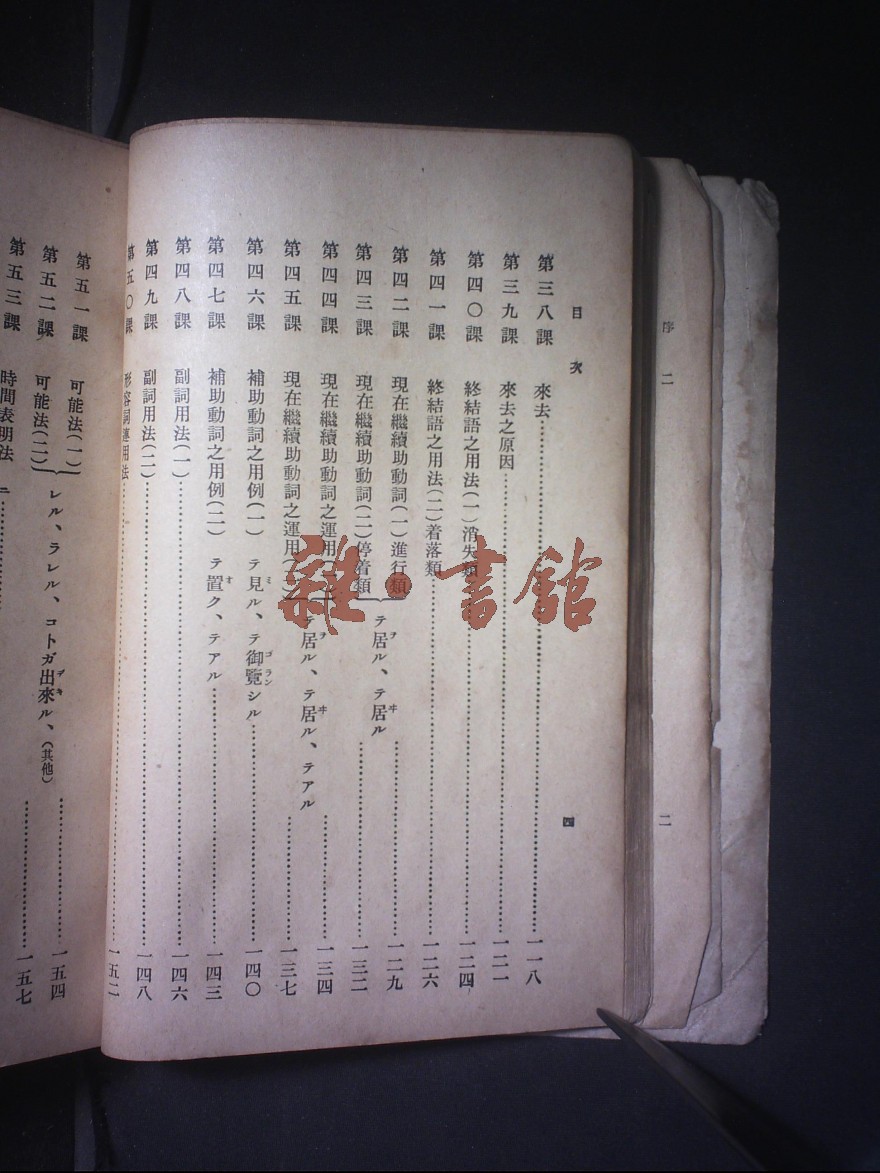 序 二
二
目次
四
第三八課 來去……一一八
第三九課 來去之原因……一二一
第四〇課 終結語之用法(一)消失類……一二四
第四一課 終結語之用法(二)着落類……一二六
第四二課 現在繼續助動詞(一)進行類 テ居ル、テ居ル……一二九
第四三課 現在繼續助動詞(二)停着類……一三二
第四四課 現在繼續助動詞之運用 テ居ル、テ居ル、テアル……一三四
第四五課 現在繼續助動詞之運用……一三七
第四六課 補助動詞之用例(一) テ見ル、テ御覽シル……一四〇
第四七課 補助動詞之用例(二) テ置ク、テアル……一四三
第四八課 副詞用法(一)……一四六
第四九課 副詞用法(二)……一四八
第五〇課 形容詞連用法……一五二
第五一課 可能法(一)
第五二課 可能法(二) レル、ラレル、コトガ出來ル、(其他)……一五四
第五三課 時間表明法……一五七
雜·書館